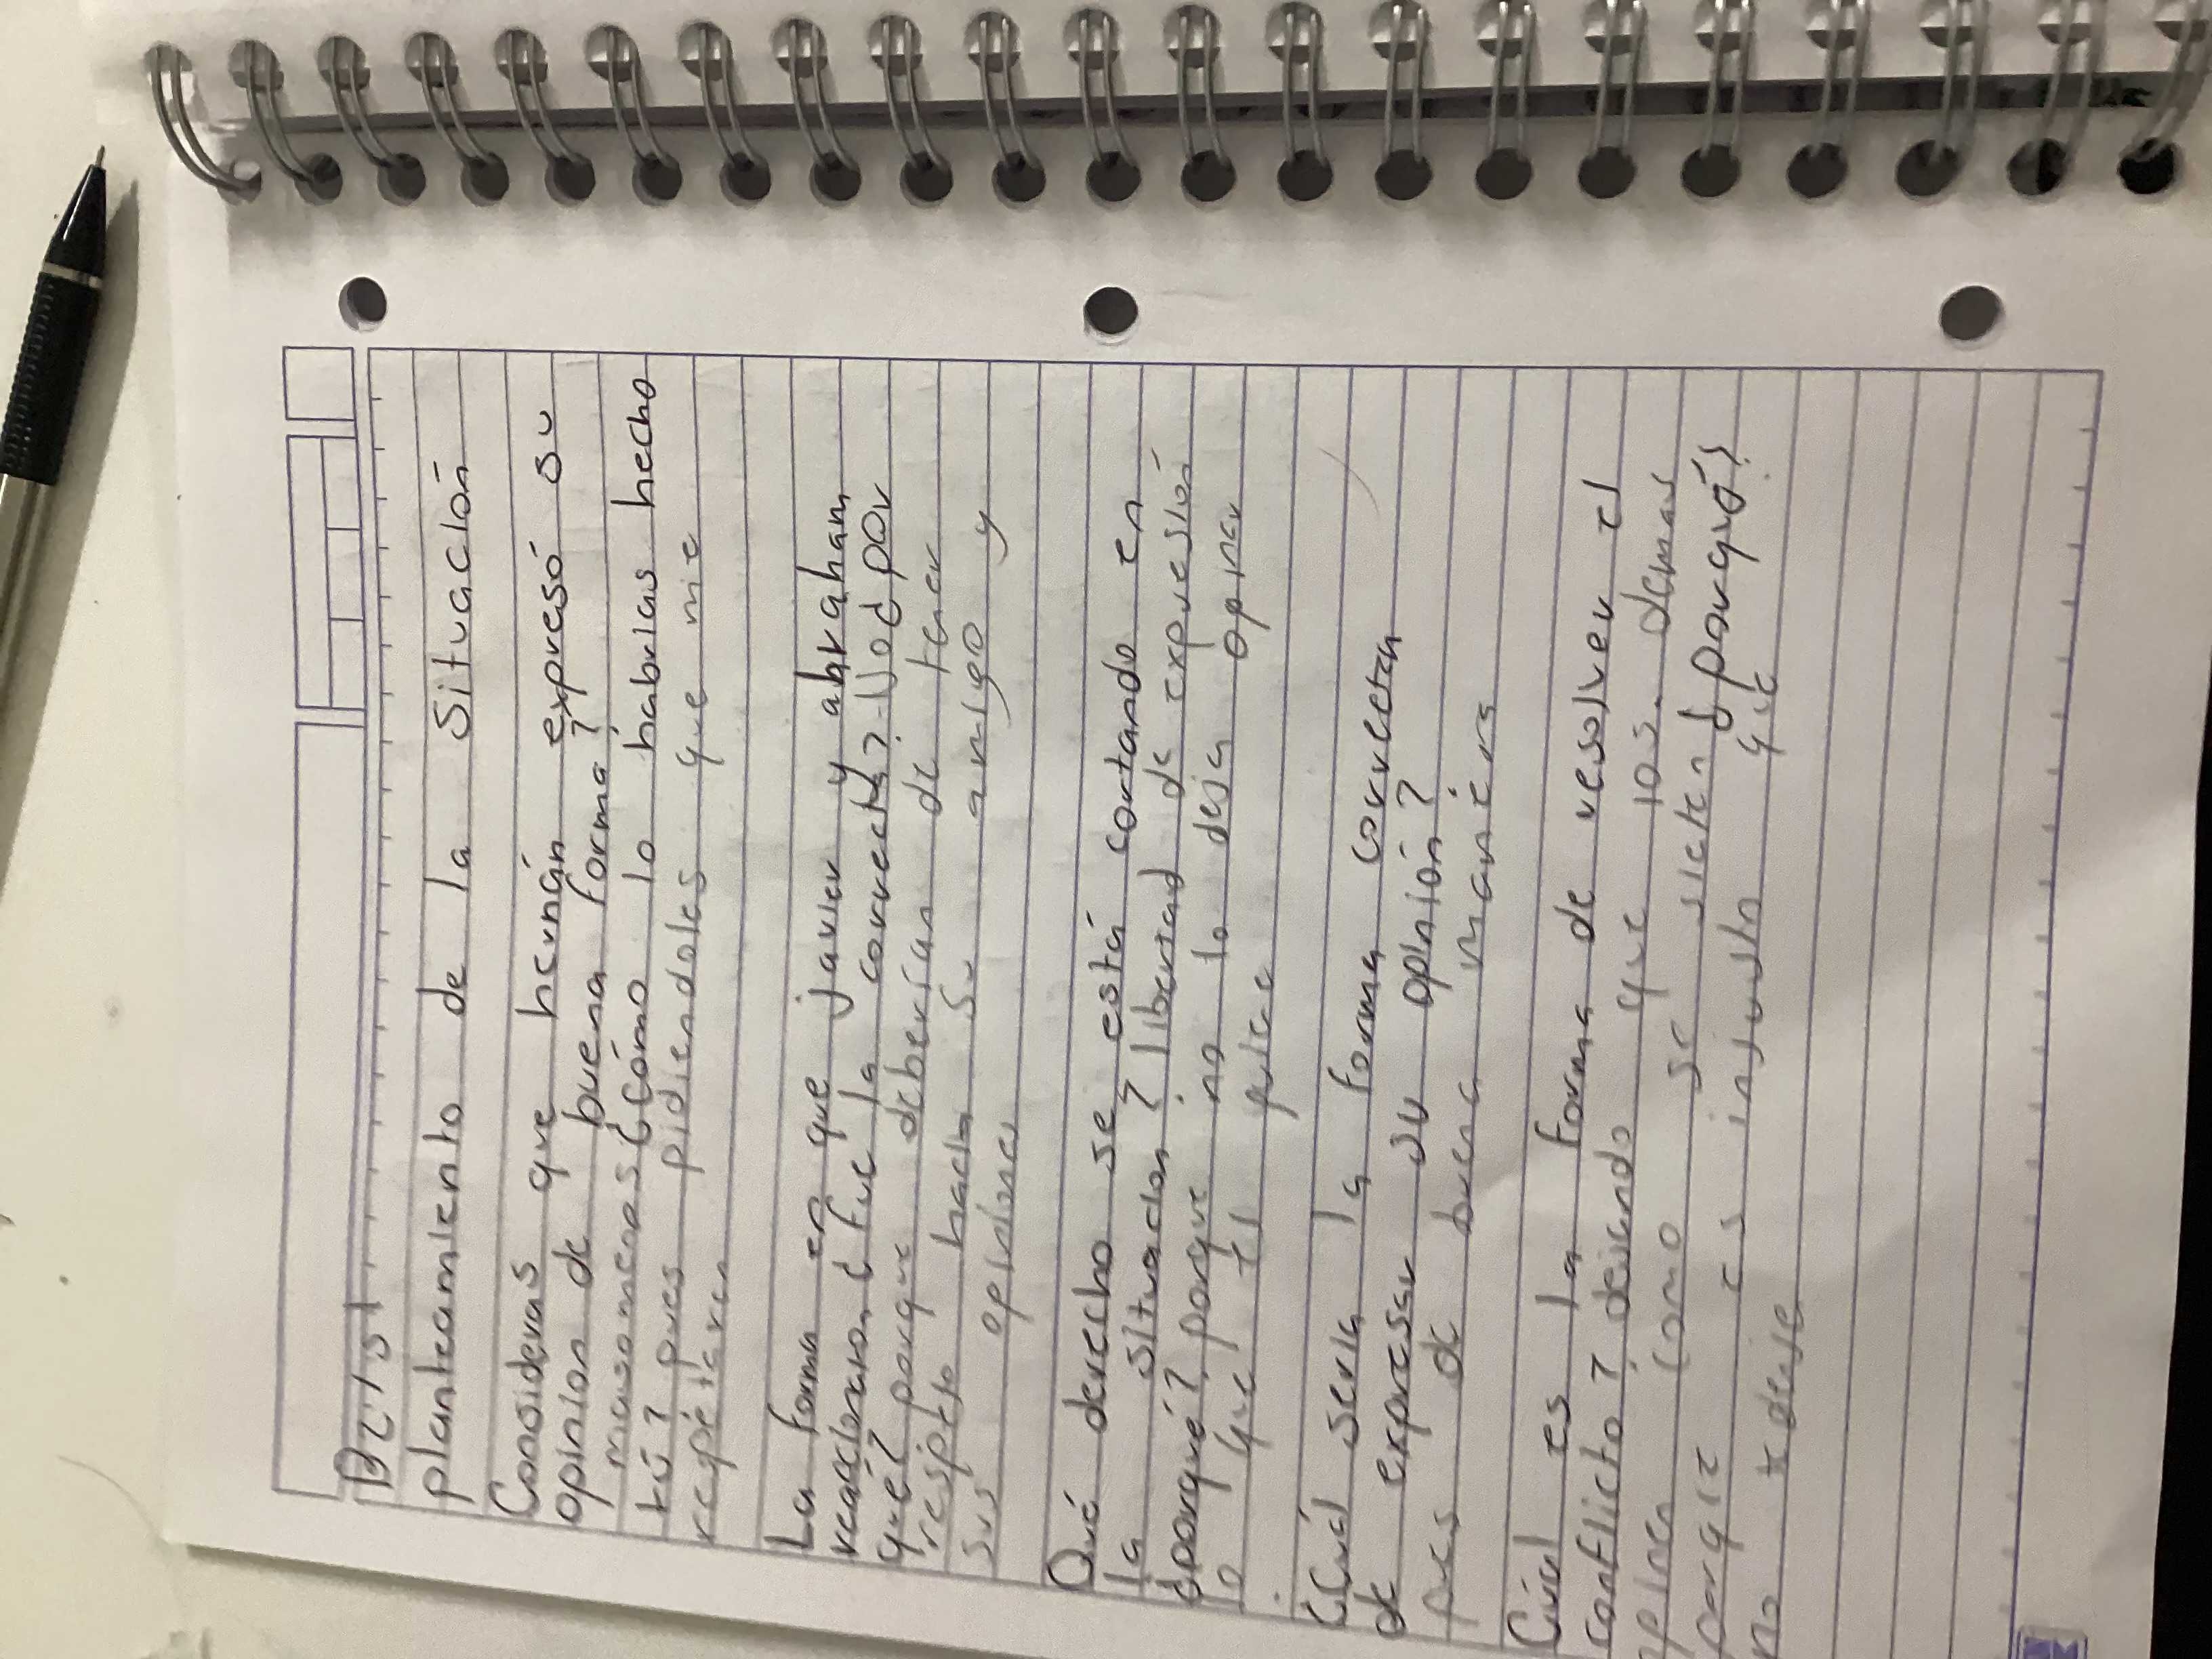 planteamiento de la Situación
Consideras que hernán expresó su
opinion de buena forma?
masomenos ¿Cómo lo habrias hecho
tú? pues pidiendoles que me
respétaran
La forma en que javier y abraham
reacionaron ¿fue la correcta? No¿por
qué? porque deberían de tener
respeto hacia su amigo y
sus opiniones
Qué derecho se está cortando en
la situacion? libertad de expresión
¿porqué? porque no lo deja opinar
lo que él piense
¿Cuál seria la forma correcta
de expresar su opinión?
pues de buena manera
Cuál es la forma de resolver el
conflicto? dejando que los demas
opinen como se sienten ¿porqué?
porque es injusto que
no deje